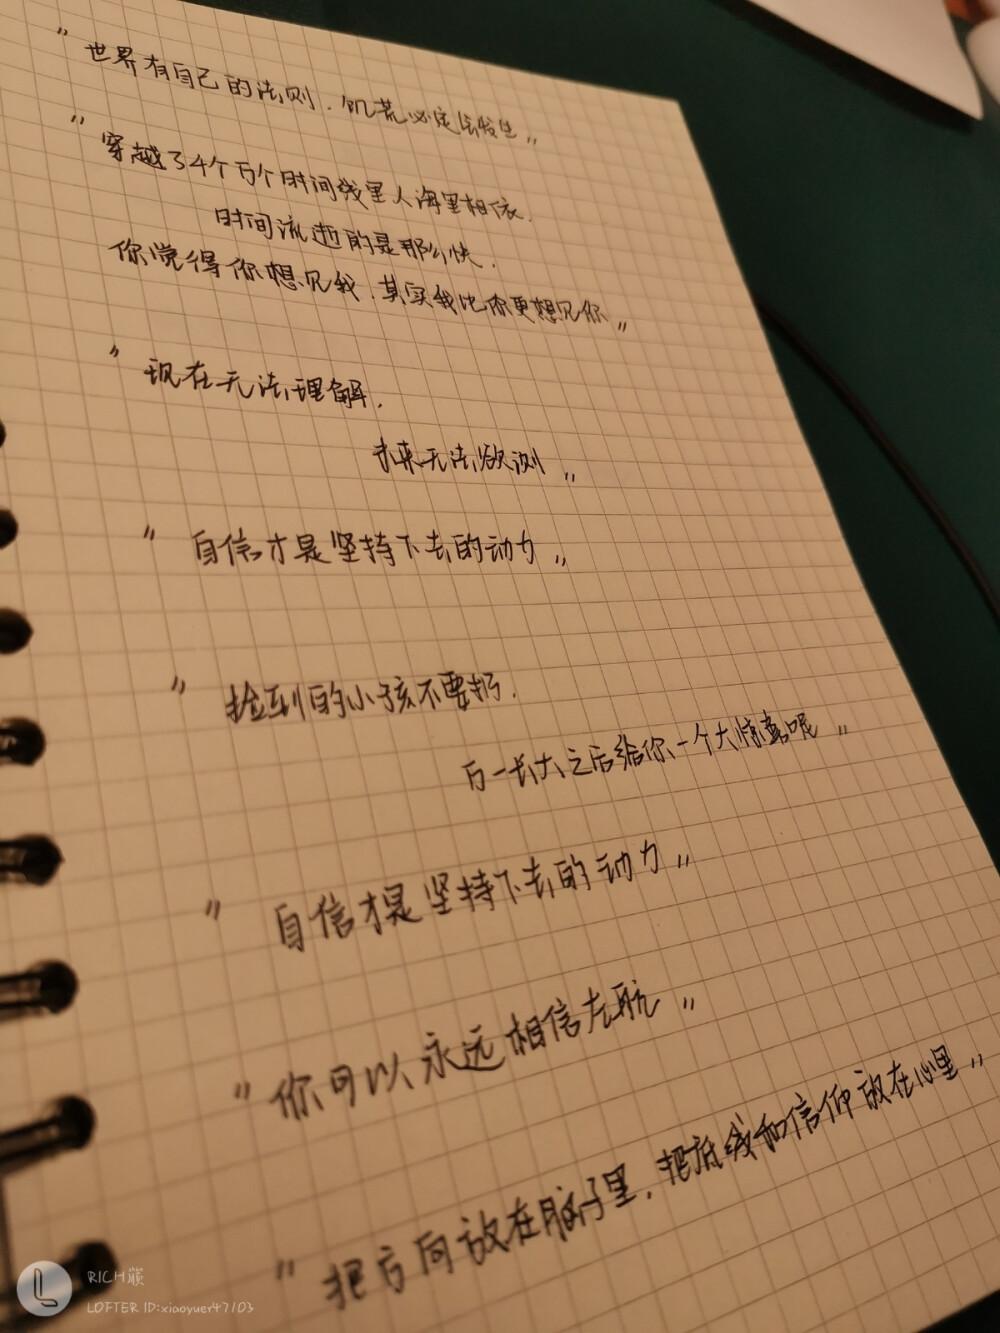 "世界有自己的法则.饥荒必定会发生"
"穿越了4个万个时间线里人海里相依.
时间流逝的是那么快.
你觉得你想见我.其实我比你更想见你"
"现在无法理解.
未来无法欲测"
"自信才是坚持下去的动力"
"捡到的小孩不要扔.
万一长大之后给你一个大惊喜呢"
"自信才是坚持下去的动力"
"你可以永远相信左航"
"把方向放在脑子里.把底线和信仰放在心里"
RICH
LOFTER ID:xiaoyuer47103